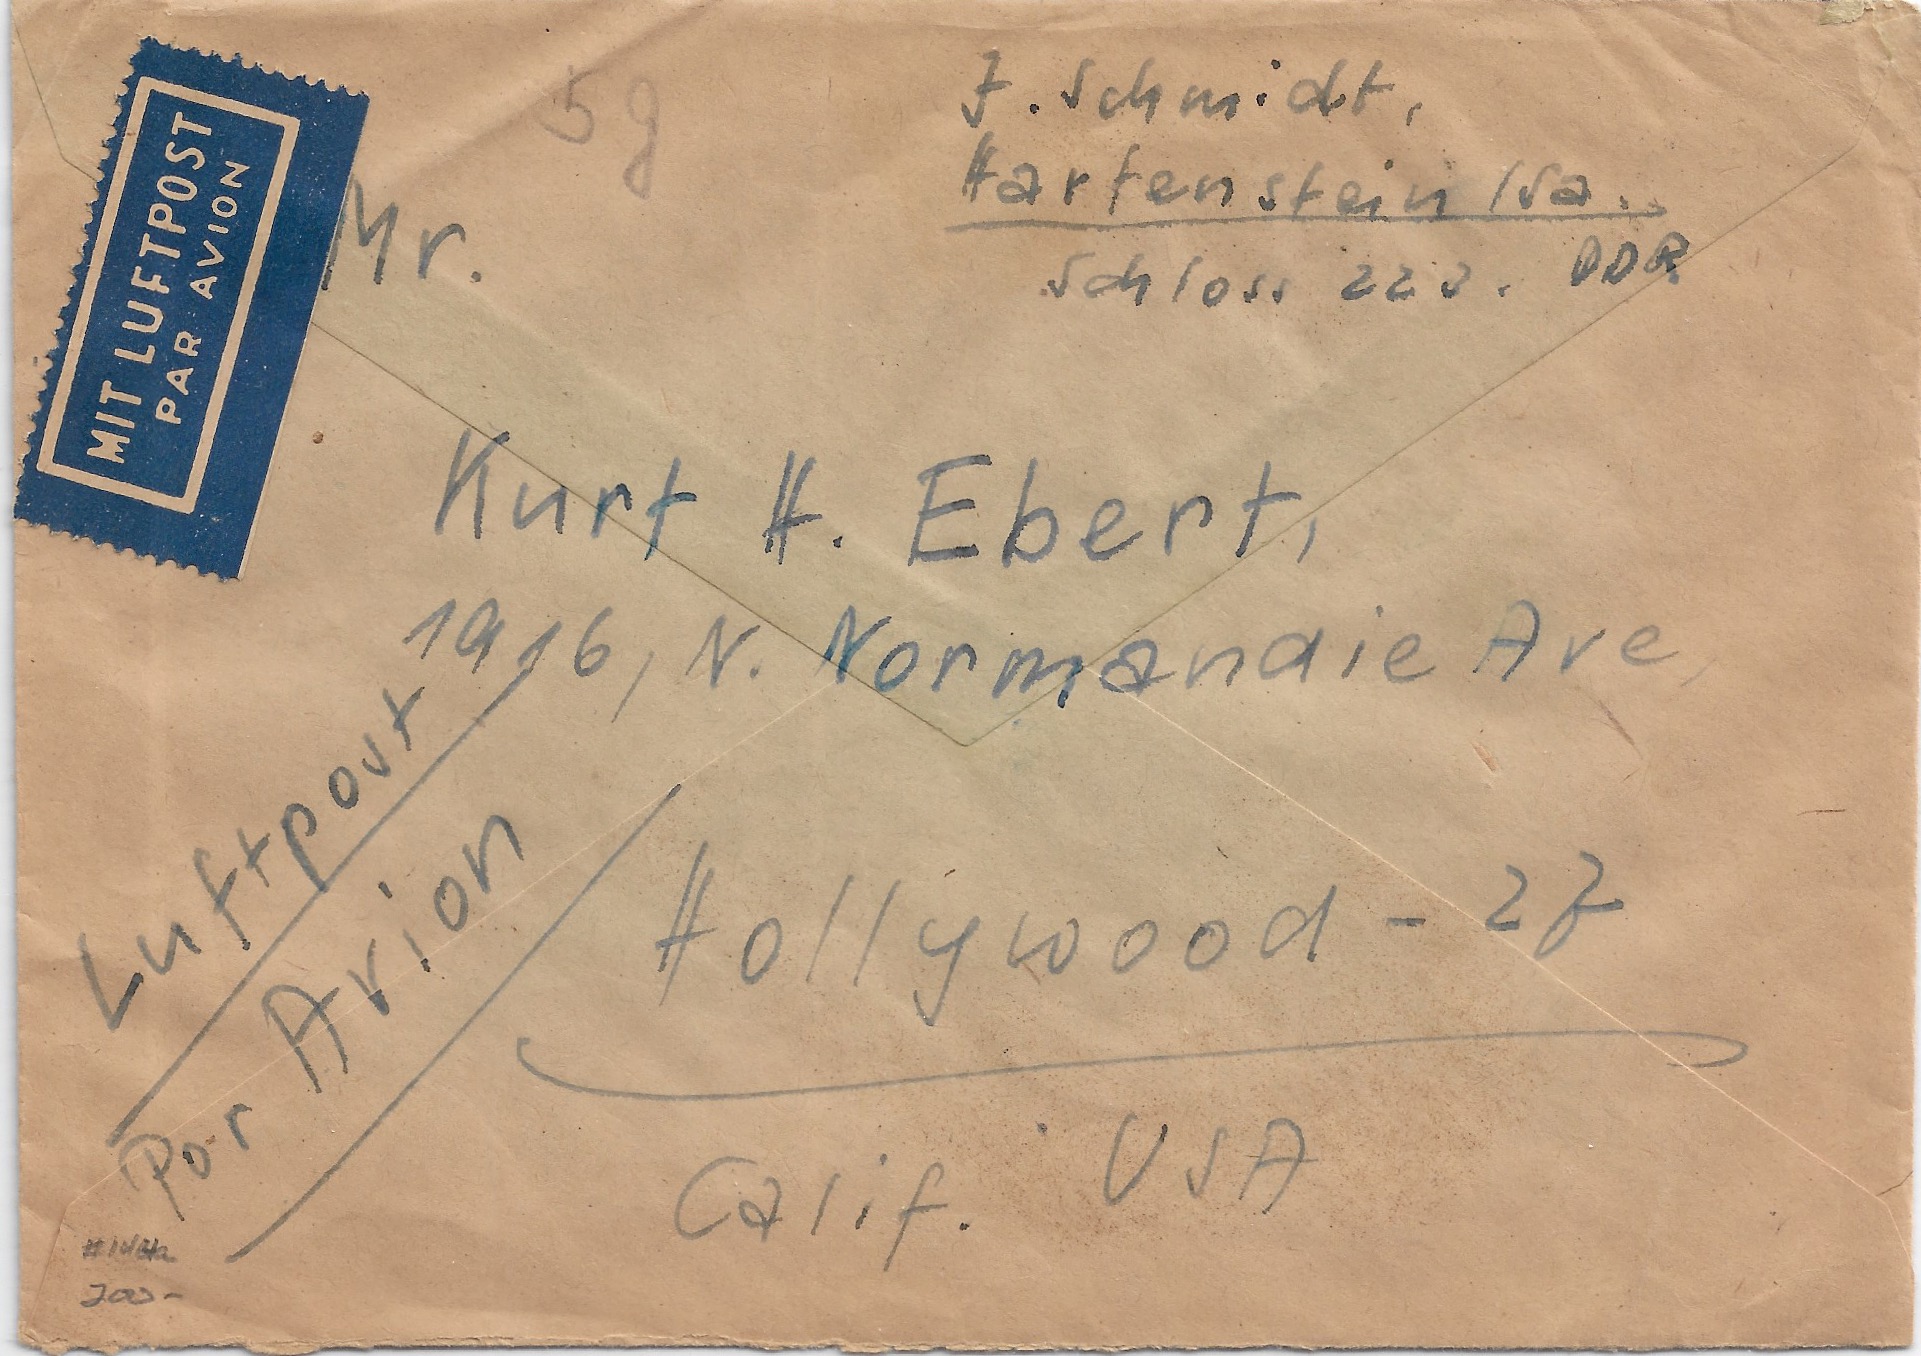 MIT LUFTPOST
PAR AVION
5g
J. Schmidt,
Hartenstein /Sa.
Schloss 223. DDR
Mr.
Kurt H. Ebert,
1916, N. Normandie Ave,
Hollywood - 27
Calif. USA
Luftpost
Por Avion
200-